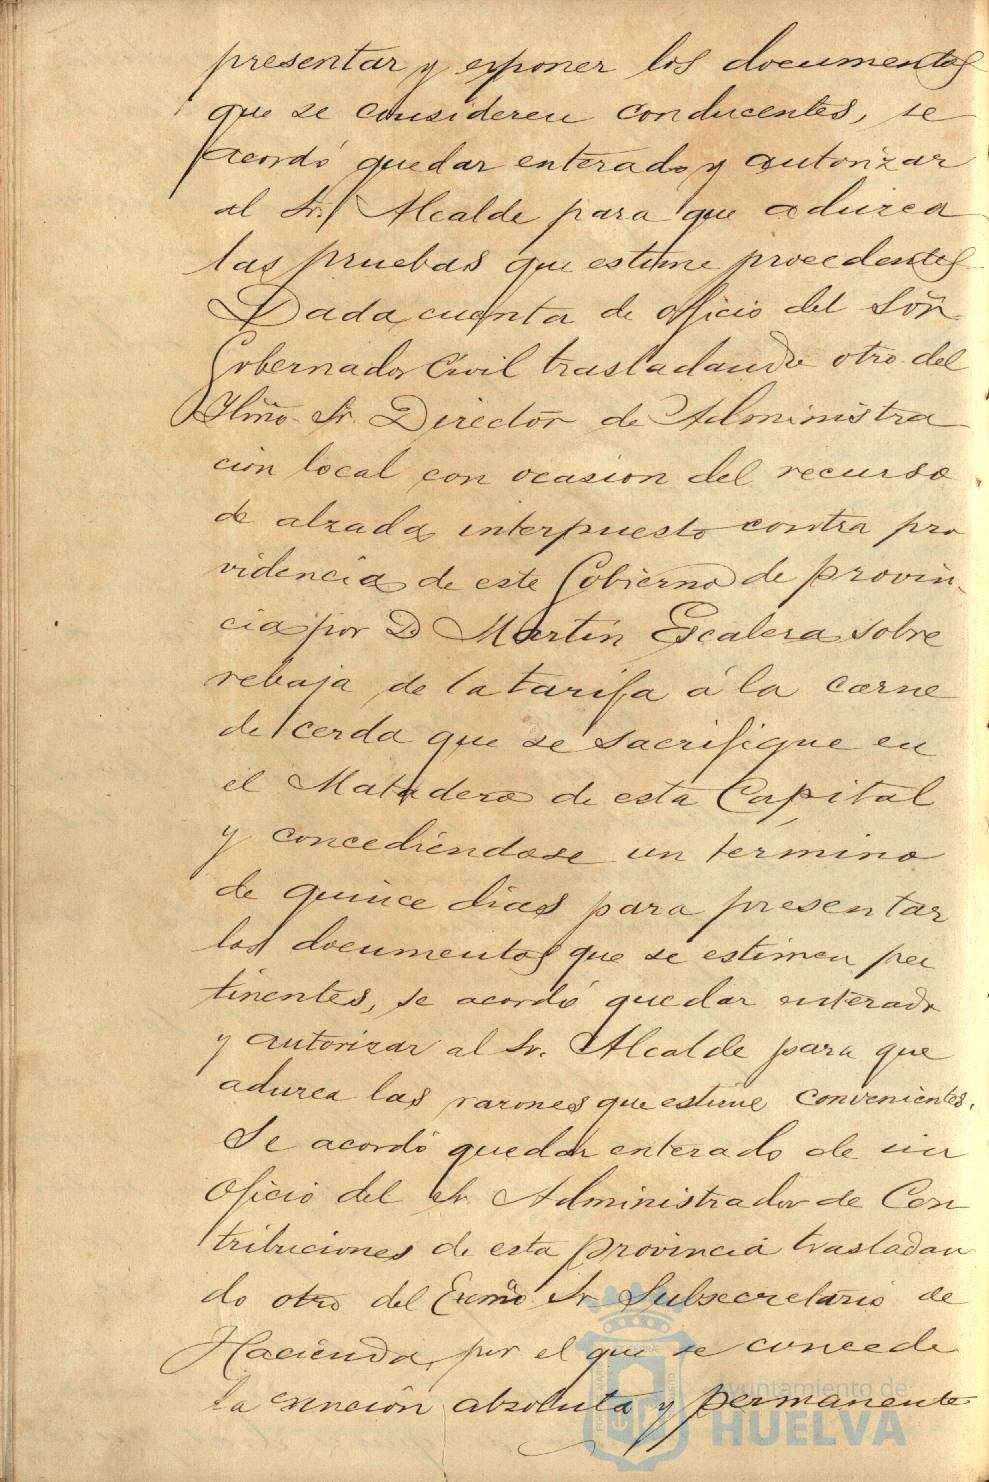 presentar y exponer los documentos
que se consideren conducentes, se
acordó quedar enterado y autorizar
al Sr. Alcalde para que aduzca
las pruebas que estime procedentes
Dada cuenta de oficio del Señr
Gobernador Civil trasladando otro del
Ilmo. Sr. Director de Administra
ción local con ocasion del recurso
de alzada interpuesto contra pro
videncia de este Gobierno de provin-
cia por D. Martín Escalera sobre
rebaja de la tarifa á la carne
de cerda que se sacrifique en
el Matadero de esta Capital
y concediéndose un término
de quince dias para presentar
los documentos que se estimen per
tinentes, se acordó quedar enterado
y autorizar al Sr. Alcalde para que
aduzca las razones que estime convenientes.
Se acordó quedar enterado de un
oficio del Sr. Administrador de Con
tribuciones de esta provincia trasladan
do otro del Excmo Sr Subsecretario de
Hacienda, por el que se concede
la exención absoluta y permanente
Ayuntamiento de
HUELVA